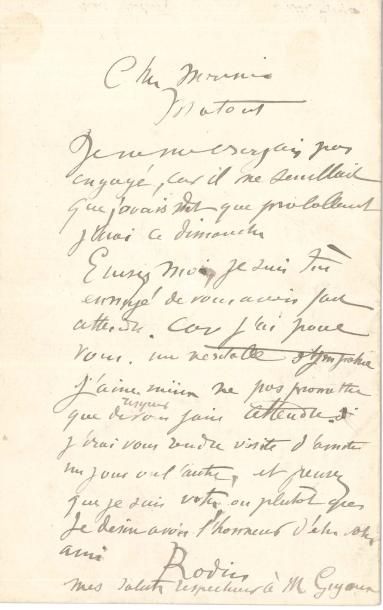 Cher Monsieur
Je ne me croyais pas
engagé, car il me semblait
que j'avais dit que probablement
j'irai ce dimanche
Excusez moi, je suis très
ennuyé de vous avoir fait
attendre. Car j'ai pour
vous. une véritable sympathie
j'aime mieux ne pas promettre
que de vous faire attendre. Si
risquer
j'irai vous rendre visite d'amitié
un jour ou l'autre, et pensez
que je suis votre ou plutot que
Je desire avoir l'honneur d'etre votre
ami
Rodin
mes saluts respectueux à M